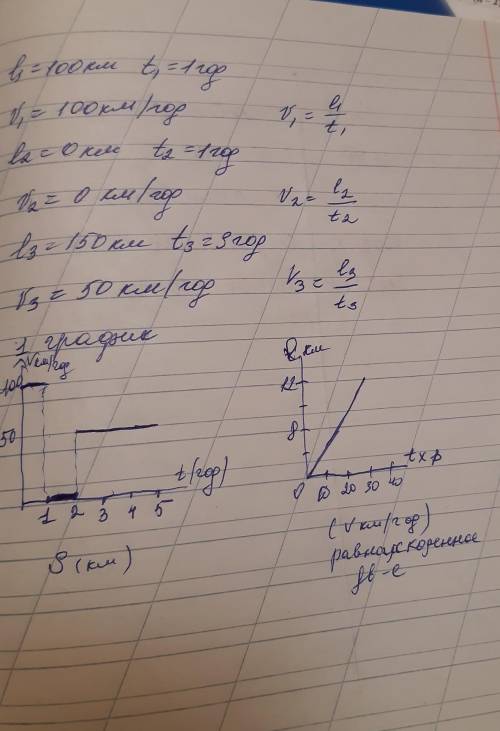 l₁=100км t₁=1год
V₁=100км/год V₁=l₁/t₁
l₂=0км t₂=1год
V₂=0 км/год V₂=l₂/t₂
l₃=150км t₃=3год
V₃=50км/год V₃=l₃/t₃
1 график
V км/год
100
50
t(год)
1 2 3 4 5
S(км)
l км
12
8
0 10 20 30 40
t хв
(V км/год)